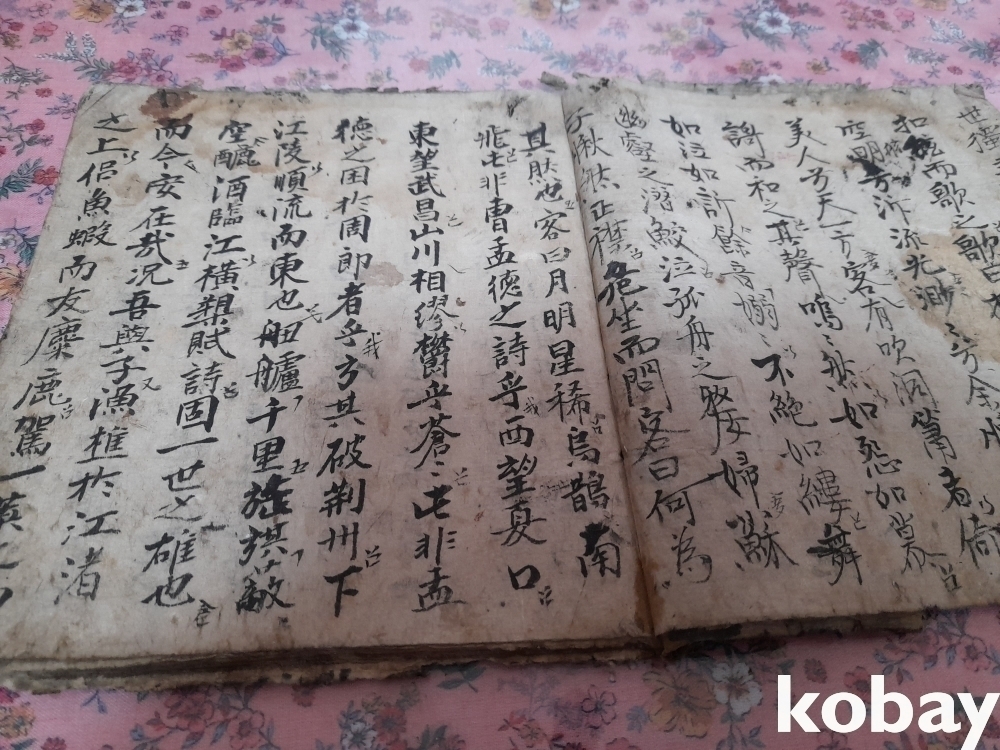 世獨
扣舷而歌之歌曰
空明兮泝流光渺〻兮余懷
美人兮天一方客有吹洞簫者倚
謌而和之其聲鳴〻然如怨如慕
如泣如訴餘音嫋〻不絶如縷舞
幽壑之潛鮫泣孤舟之嫠婦蘇
子愀然正襟危坐而問客曰何為
其然也客曰月明星稀烏鵲南
飛此非曹孟德之詩乎西望夏口
東望武昌山川相繆欝乎蒼〻此非孟
德之困於周郎者乎方其破荆州下
江陵順流而東也舳艫千里旌旗蔽
空釃酒臨江橫槊賦詩固一世之雄也
而今安在哉況吾與子漁樵於江渚
之上侶魚蝦而友麋鹿駕一葉之
kobay